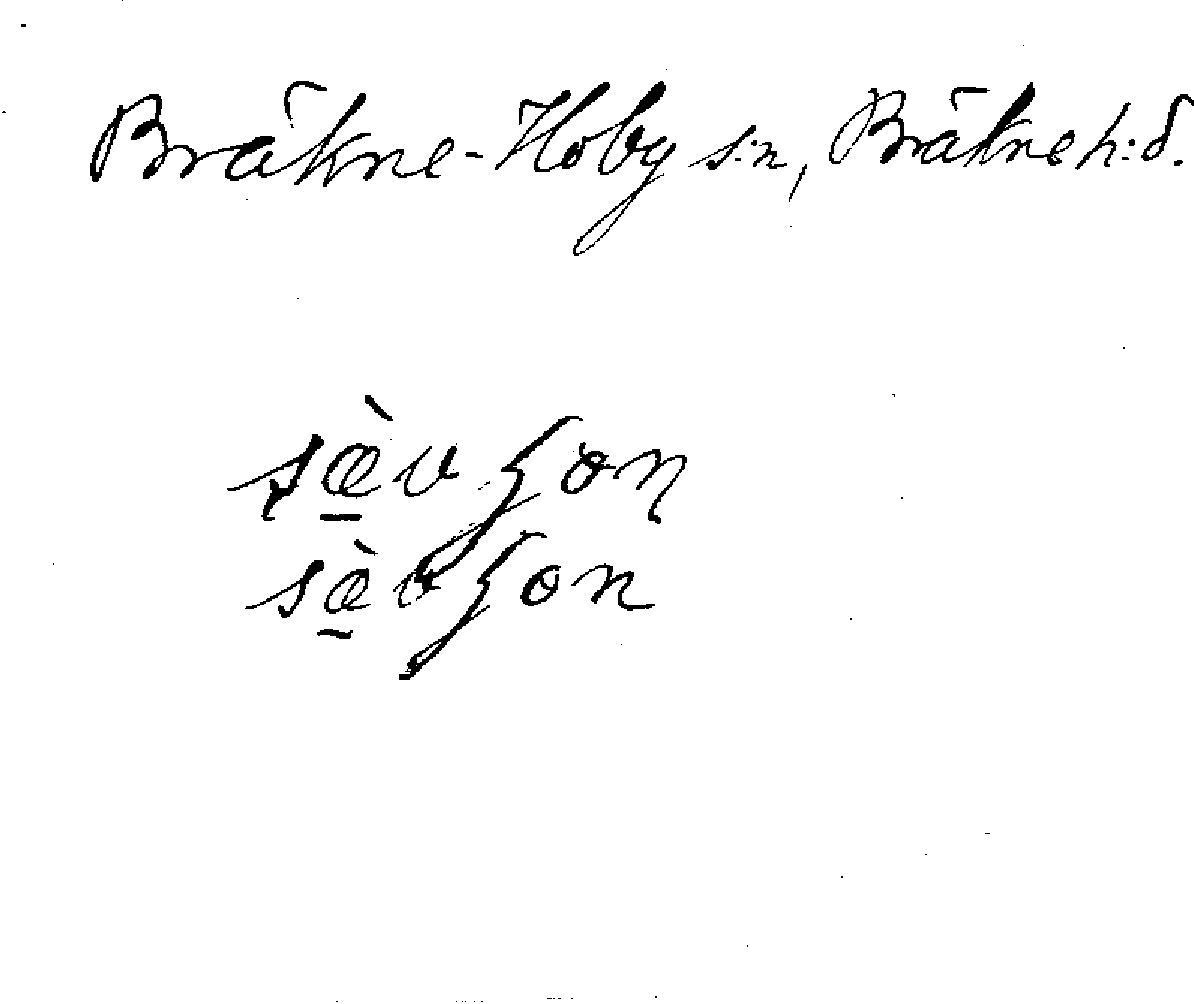 Bräkne-Hoby s:n, Bräkne h:d.
sæ̠̀vʒon
sæ̠̀vʒon